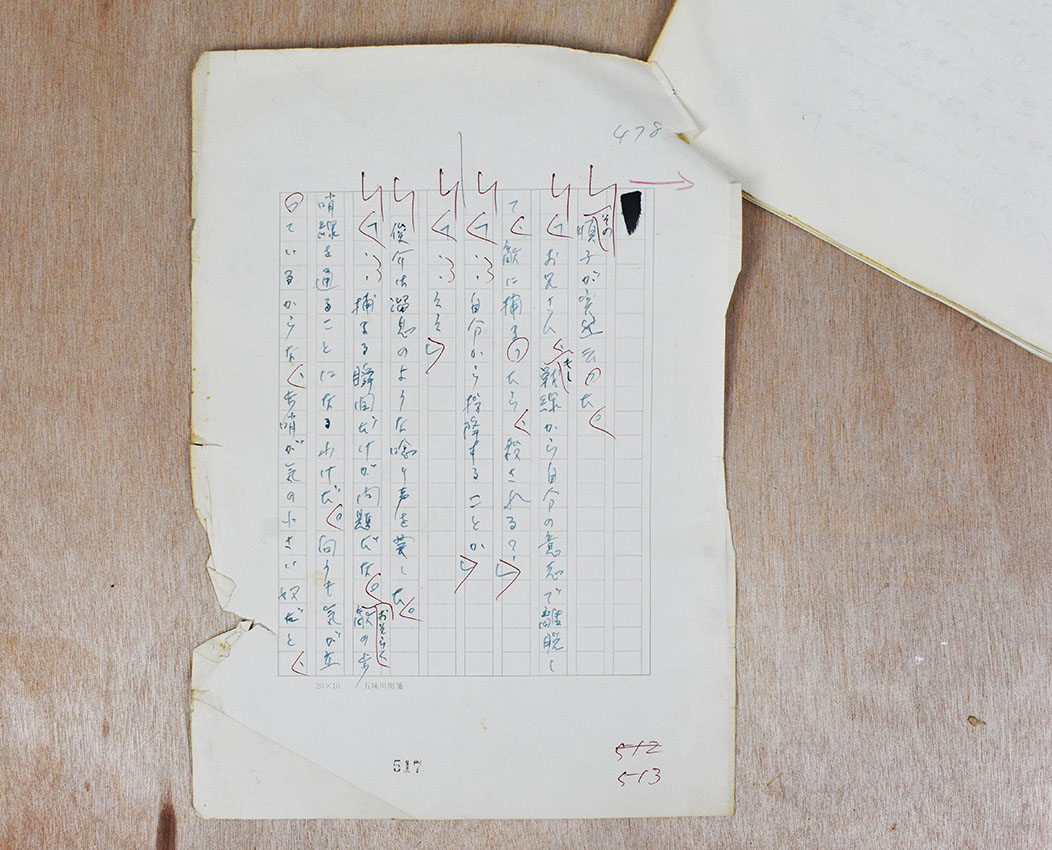 478
その
順子が突然云った。
「お兄さん、もし戦線から自分の意志で離脱し
て、敵に捕まったら、殺される?」
「……自分から投降することか」
「……ええ」
俊介は溜息のような唸り声を発した。
「……捕まる瞬間だけが問題だな。おそらく敵の歩
哨線を通ることになるわけだ。向うも気が立
っているからな、歩哨が気の小さい奴だと、
20×10 五味川用箋
517
512
513